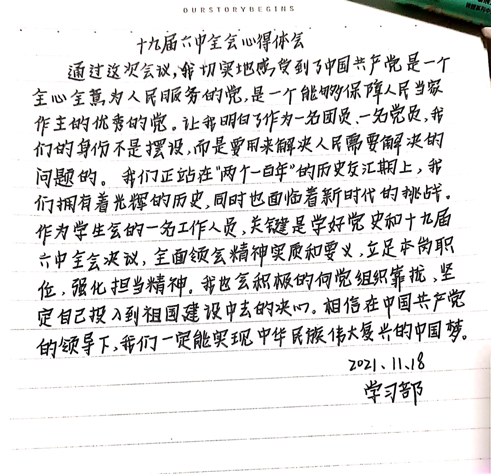 OURSTORYBEGINS
十九届六中全会心得体会
通过这次会议,我切实地感受到了中国共产党是一个
全心全意为人民服务的党,是一个能够保障人民当家
作主的优秀的党。让我明白了作为一名团员、一名党员,我
们的身份不是摆设,而是要用来解决人民需要解决的
问题的。我们正站在"两个一百年"的历史交汇期上,我
们拥有着光辉的历史,同时也面临着新时代的挑战。
作为学生会的一名工作人员,关键是学好党史和十九届
六中全会决议,全面领会精神实质和要义,立足本岗职
位,强化担当精神。我也会积极的向党组织靠拢,坚
定自己投入到祖国建设中去的决心。相信在中国共产党
的领导下,我们一定能实现中华民族伟大复兴的中国梦。
2021.11.18
学习部